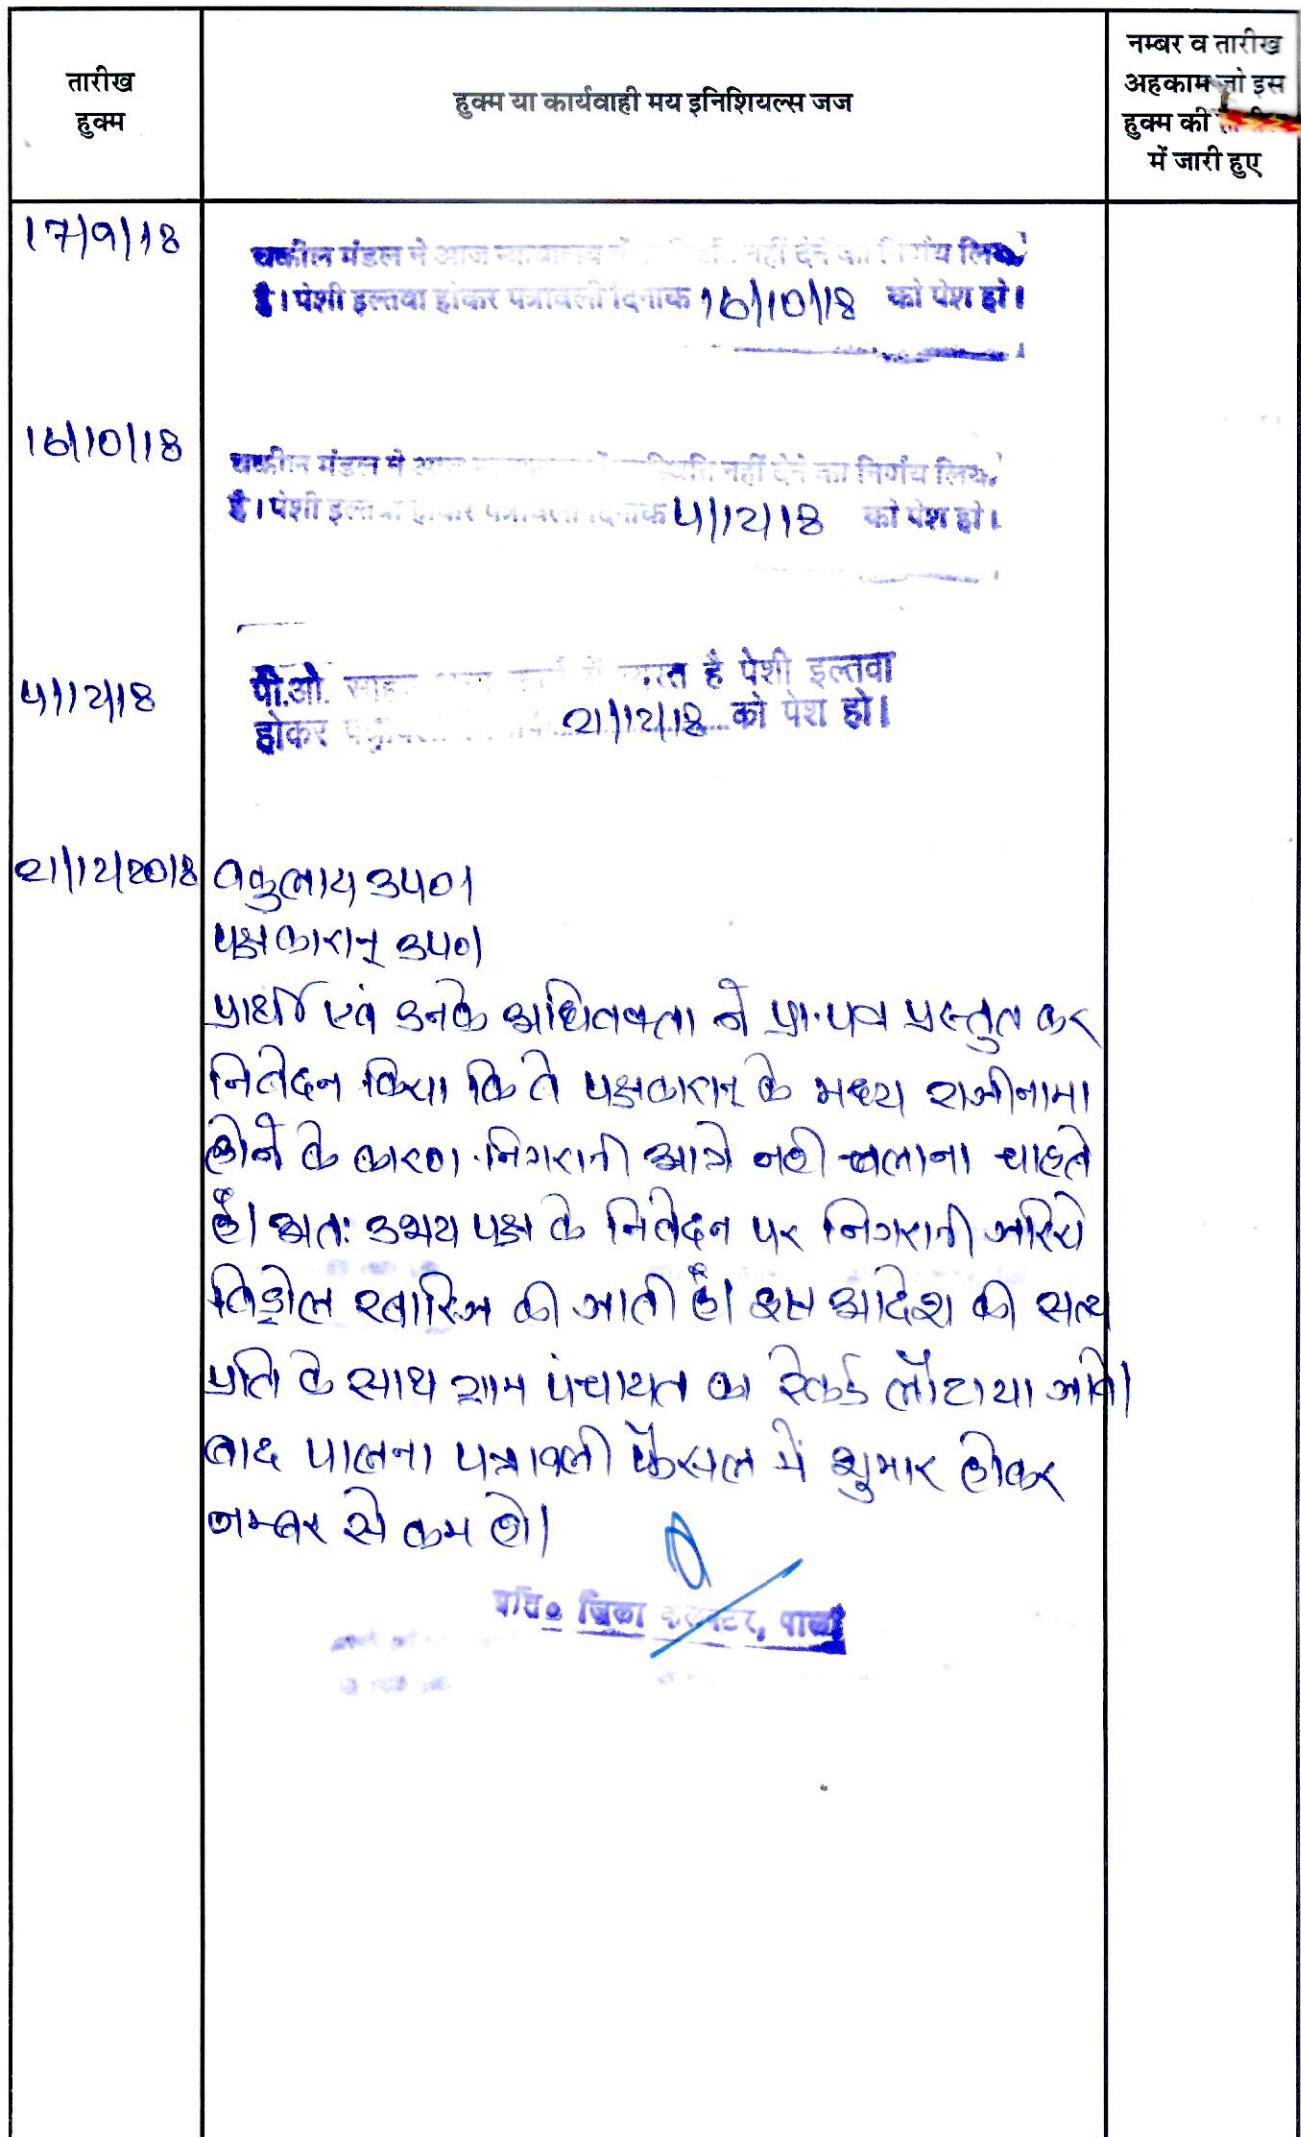 तारीख
हुक्म
हुक्म या कार्यवाही मय इनिशियल्स जज
नम्बर व तारीख
अहकाम जो इस
हुक्म की
में जारी हुए
17/9/18
वकील मंडल ने आज न्यायालय में नहीं देने का निर्णय लिया
है। पेशी इल्तवा होकर पत्रावली दिनांक 16/10/18 को पेश हो।
16/10/18
वकील मंडल ने आज नहीं देने का निर्णय लिया
है। पेशी इल्तवा होकर पत्रावली दिनांक 4/12/18 को पेश हो।
4/12/18
पी.ओ. साहब व्यस्त है पेशी इल्तवा
होकर 21/12/18 को पेश हो।
21/12/2018
वकुलाय उप०।
पक्षकारान् उप०।
प्रार्थी एवं उनके अधिवक्ता ने प्रा.पत्र प्रस्तुत कर
निवेदन किया कि वे पक्षकारान् के मध्य राजीनामा
होने के कारण निगरानी आगे नही चलाना चाहते
हैं। अतः उभय पक्ष के निवेदन पर निगरानी जरिये
विड्रोल खारिज की जाती हैं। इस आदेश की सत्य
प्रति के साथ ग्राम पंचायत का रेकर्ड लौटाया जावे।
बाद पालना पत्रावली फैसल में शुमार होकर
नम्बर से कम हो।
अति० जिला कलक्टर, पाली